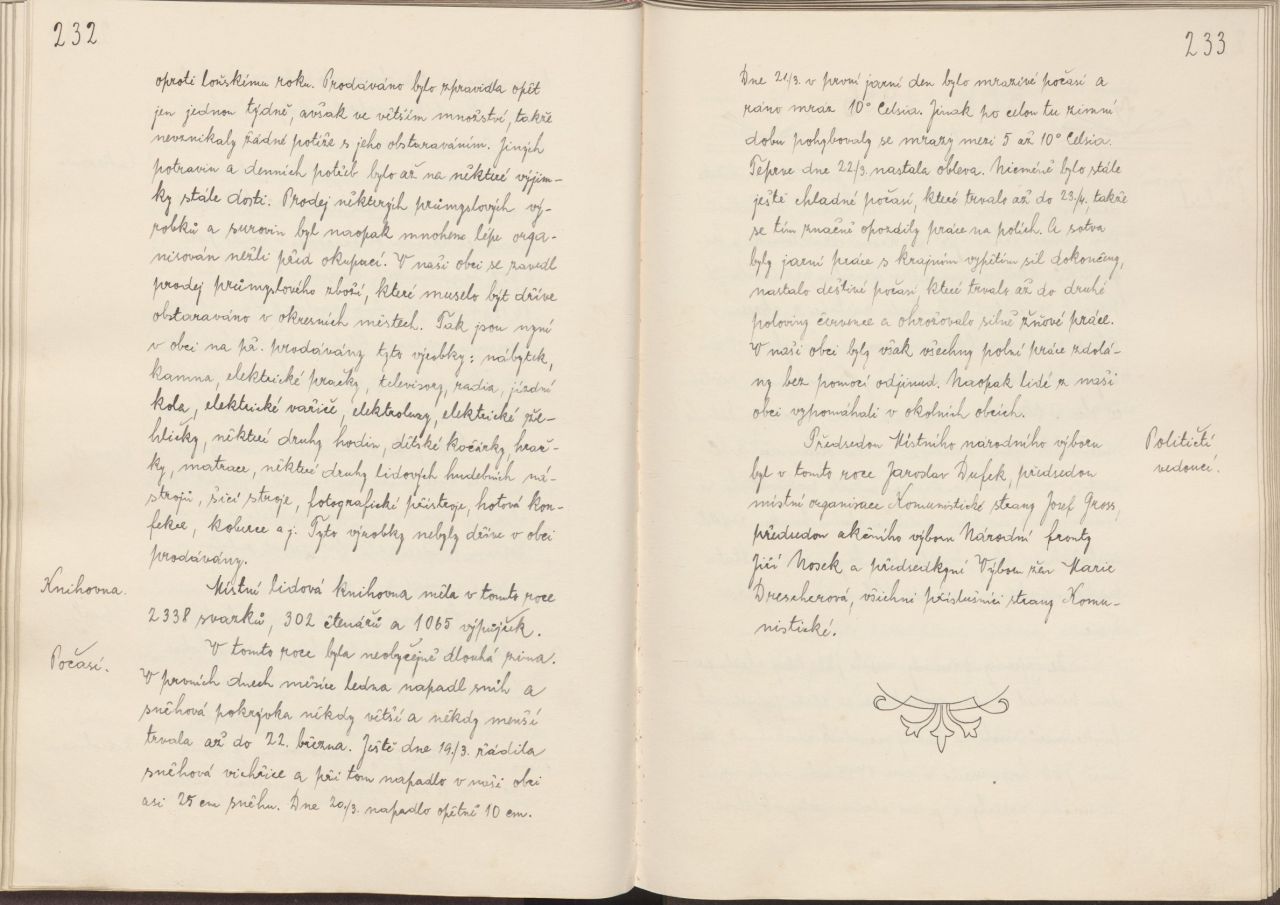 232
oproti loňskému roku. Prodáváno bylo zpravidla opět
jen jednou týdně, avšak ve větším množství, takže
nevznikaly žádné potíže s jeho obstaráváním. Jiných
potravin a denních potřeb bylo až na některé výjim-
ky stále dosti. Prodej některých průmyslových vý-
robků a surovin byl naopak mnohem lépe orga-
nisován nežli před okupací. V naší obci se zavedl
prodej průmyslového zboží, které muselo být dříve
obstaráváno v okresních městech. Tak jsou nyní
v obci na př. prodávány tyto výrobky: nábytek,
kamna, elektrické pračky, televisory, radia, jízdní
kola, elektrické vařiče, elektroluxy, elektrické žeh-
hličky, některé druhy hodin, dětské kočárky, hrač-
ky, matrace, některé druhy lidových hudebních ná-
strojů, šicí stroje, fotografické přístroje, hotová kon-
fekce, koberce a j. Tyto výrobky nebyly dříve v obci
prodávány.
Knihovna.
Místní lidová knihovna měla v tomto roce
2338 svazků, 302 čtenářů a 1065 výpůjček.
Počasí.
V tomto roce byla neobyčejně dlouhá zima.
V prvních dnech měsíce ledna napadl sníh a
sněhová pokrývka někdy větší a někdy menší
trvala až do 22. března. Ještě dne 19./3. řádila
sněhová vichřice a při tom napadlo v naší obci
asi 25 cm sněhu. Dne 20./3. napadlo opětně 10 cm.
233
Dne 21/3. v první jarní den bylo mrazivé počasí a
ráno mráz 10° Celsia. Jinak po celou tu zimní
dobu pohybovaly se mrazy mezi 5 až 10° Celsia.
Teprve dne 22/3. nastala obleva. Nicméně bylo stále
ještě chladné počasí, které trvalo až do 23./4., takže
se tím značně opozdily práce na polích. A sotva
byly jarní práce s krajním vypětím sil dokončeny,
nastalo deštivé počasí, které trvalo až do druhé
poloviny července a ohrožovalo silně žňové práce.
V naší obci byly však všechny polní práce zdolá-
ny bez pomoci odjinud. Naopak lidé z naší
obci vypomáhali v okolních obcích.
Političtí
vedoucí.
Předsedou Místního národního výboru
byl v tomto roce Jaroslav Dufek, předsedou
místní organisace Komunistické strany Josef Gross,
předsedou akčního výboru Národní fronty
Jiří Nosek a předsedkyní Výboru žen Marie
Drescherová, všichni příslušníci strany Komu-
nistické.